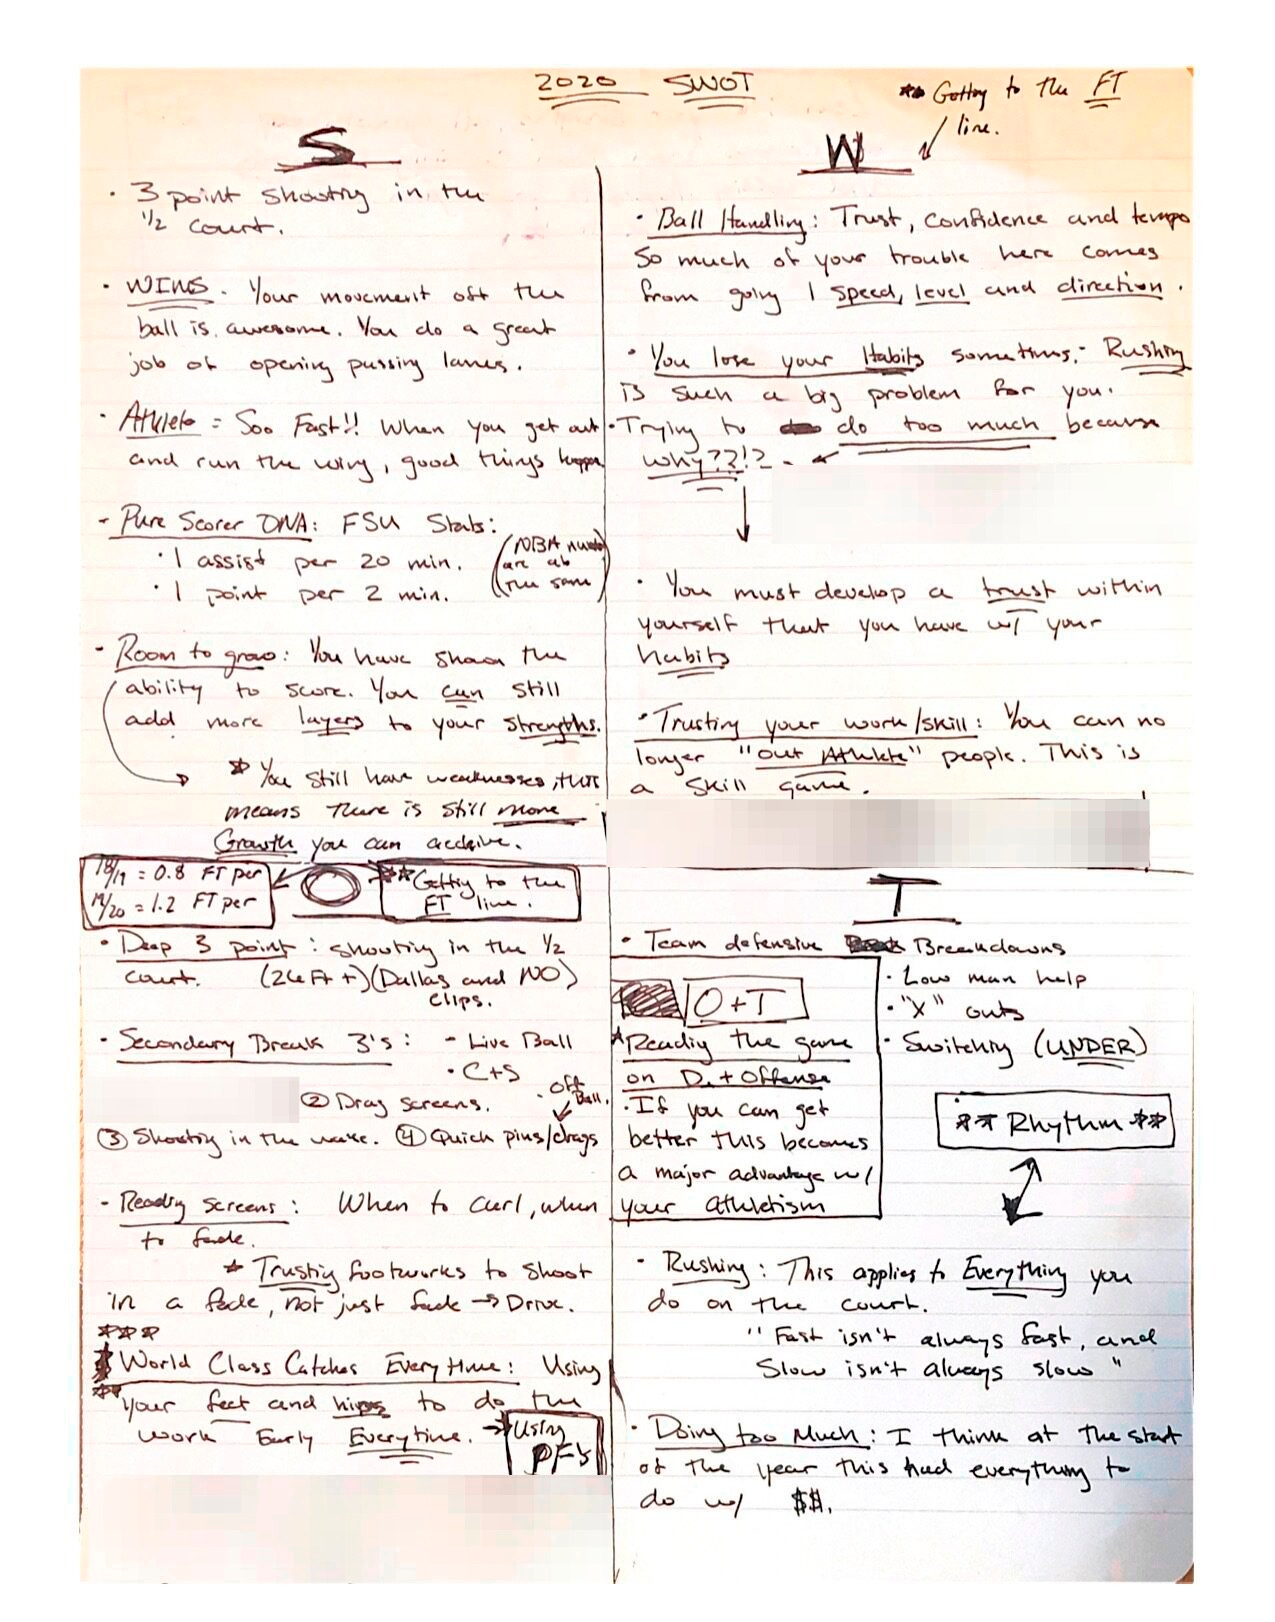 2020 SWOT
** Getting to the FT
line.
S
· 3 point shooting in the
1/2 court.
· WINS. Your movement off the
ball is awesome. You do a great
job of opening passing lanes.
· Athlete = Soo Fast!! When you get out
and run the wing, good things happen
- Pure Scorer DNA: FSU Stats:
· 1 assist per 20 min.
· 1 point per 2 min.
(NBA
are ab
the same)
· Room to grow: You have shown the
ability to score. You can still
add more layers to your strengths.
* You still have weaknesses, this
means there is still more
Growth you can achieve.
W
· Ball Handling: Trust, confidence and tempo
So much of your trouble here comes
from going 1 speed, level and direction.
· You lose your Habits sometimes. - Rushing
is such a big problem for you.
· Trying to do too much because
why??!?
· You must develop a trust within
yourself that you have w/ your
habits
· Trusting your work/skill: You can no
longer "out Athlete" people. This is
a skill game.
18/19 = 0.8 FT per
19/20 = 1.2 FT per
O
** Getting to the
FT line.
· Deep 3 point: shooting in the 1/2
court. (26 Ft +) (Dallas and NO)
clips.
· Secondary Break 3's: - Live Ball
· C+S
· Off Ball.
② Drag screens.
③ Shooting in the wake. ④ Quick pins/drags
- Reading screens: When to curl, when
to fade.
* Trusting footworks to shoot
in a fade, not just fade → Drive.
***
World Class Catches Everytime: Using
** your feet and hips to do the
work Early Everytime. → Using
PF's
T
· Team defensive Breakdowns
· Low man help
· "X" outs
· Switching (UNDER)
O+T
* Reading the game
on D. + Offense
· If you can get
better this becomes
a major advantage w/
your athletism
** Rhythm **
· Rushing: This applies to Everything you
do on the court.
"Fast isn't always fast, and
Slow isn't always slow"
· Doing too Much: I think at the start
of the year this had everything to
do w/ $$.